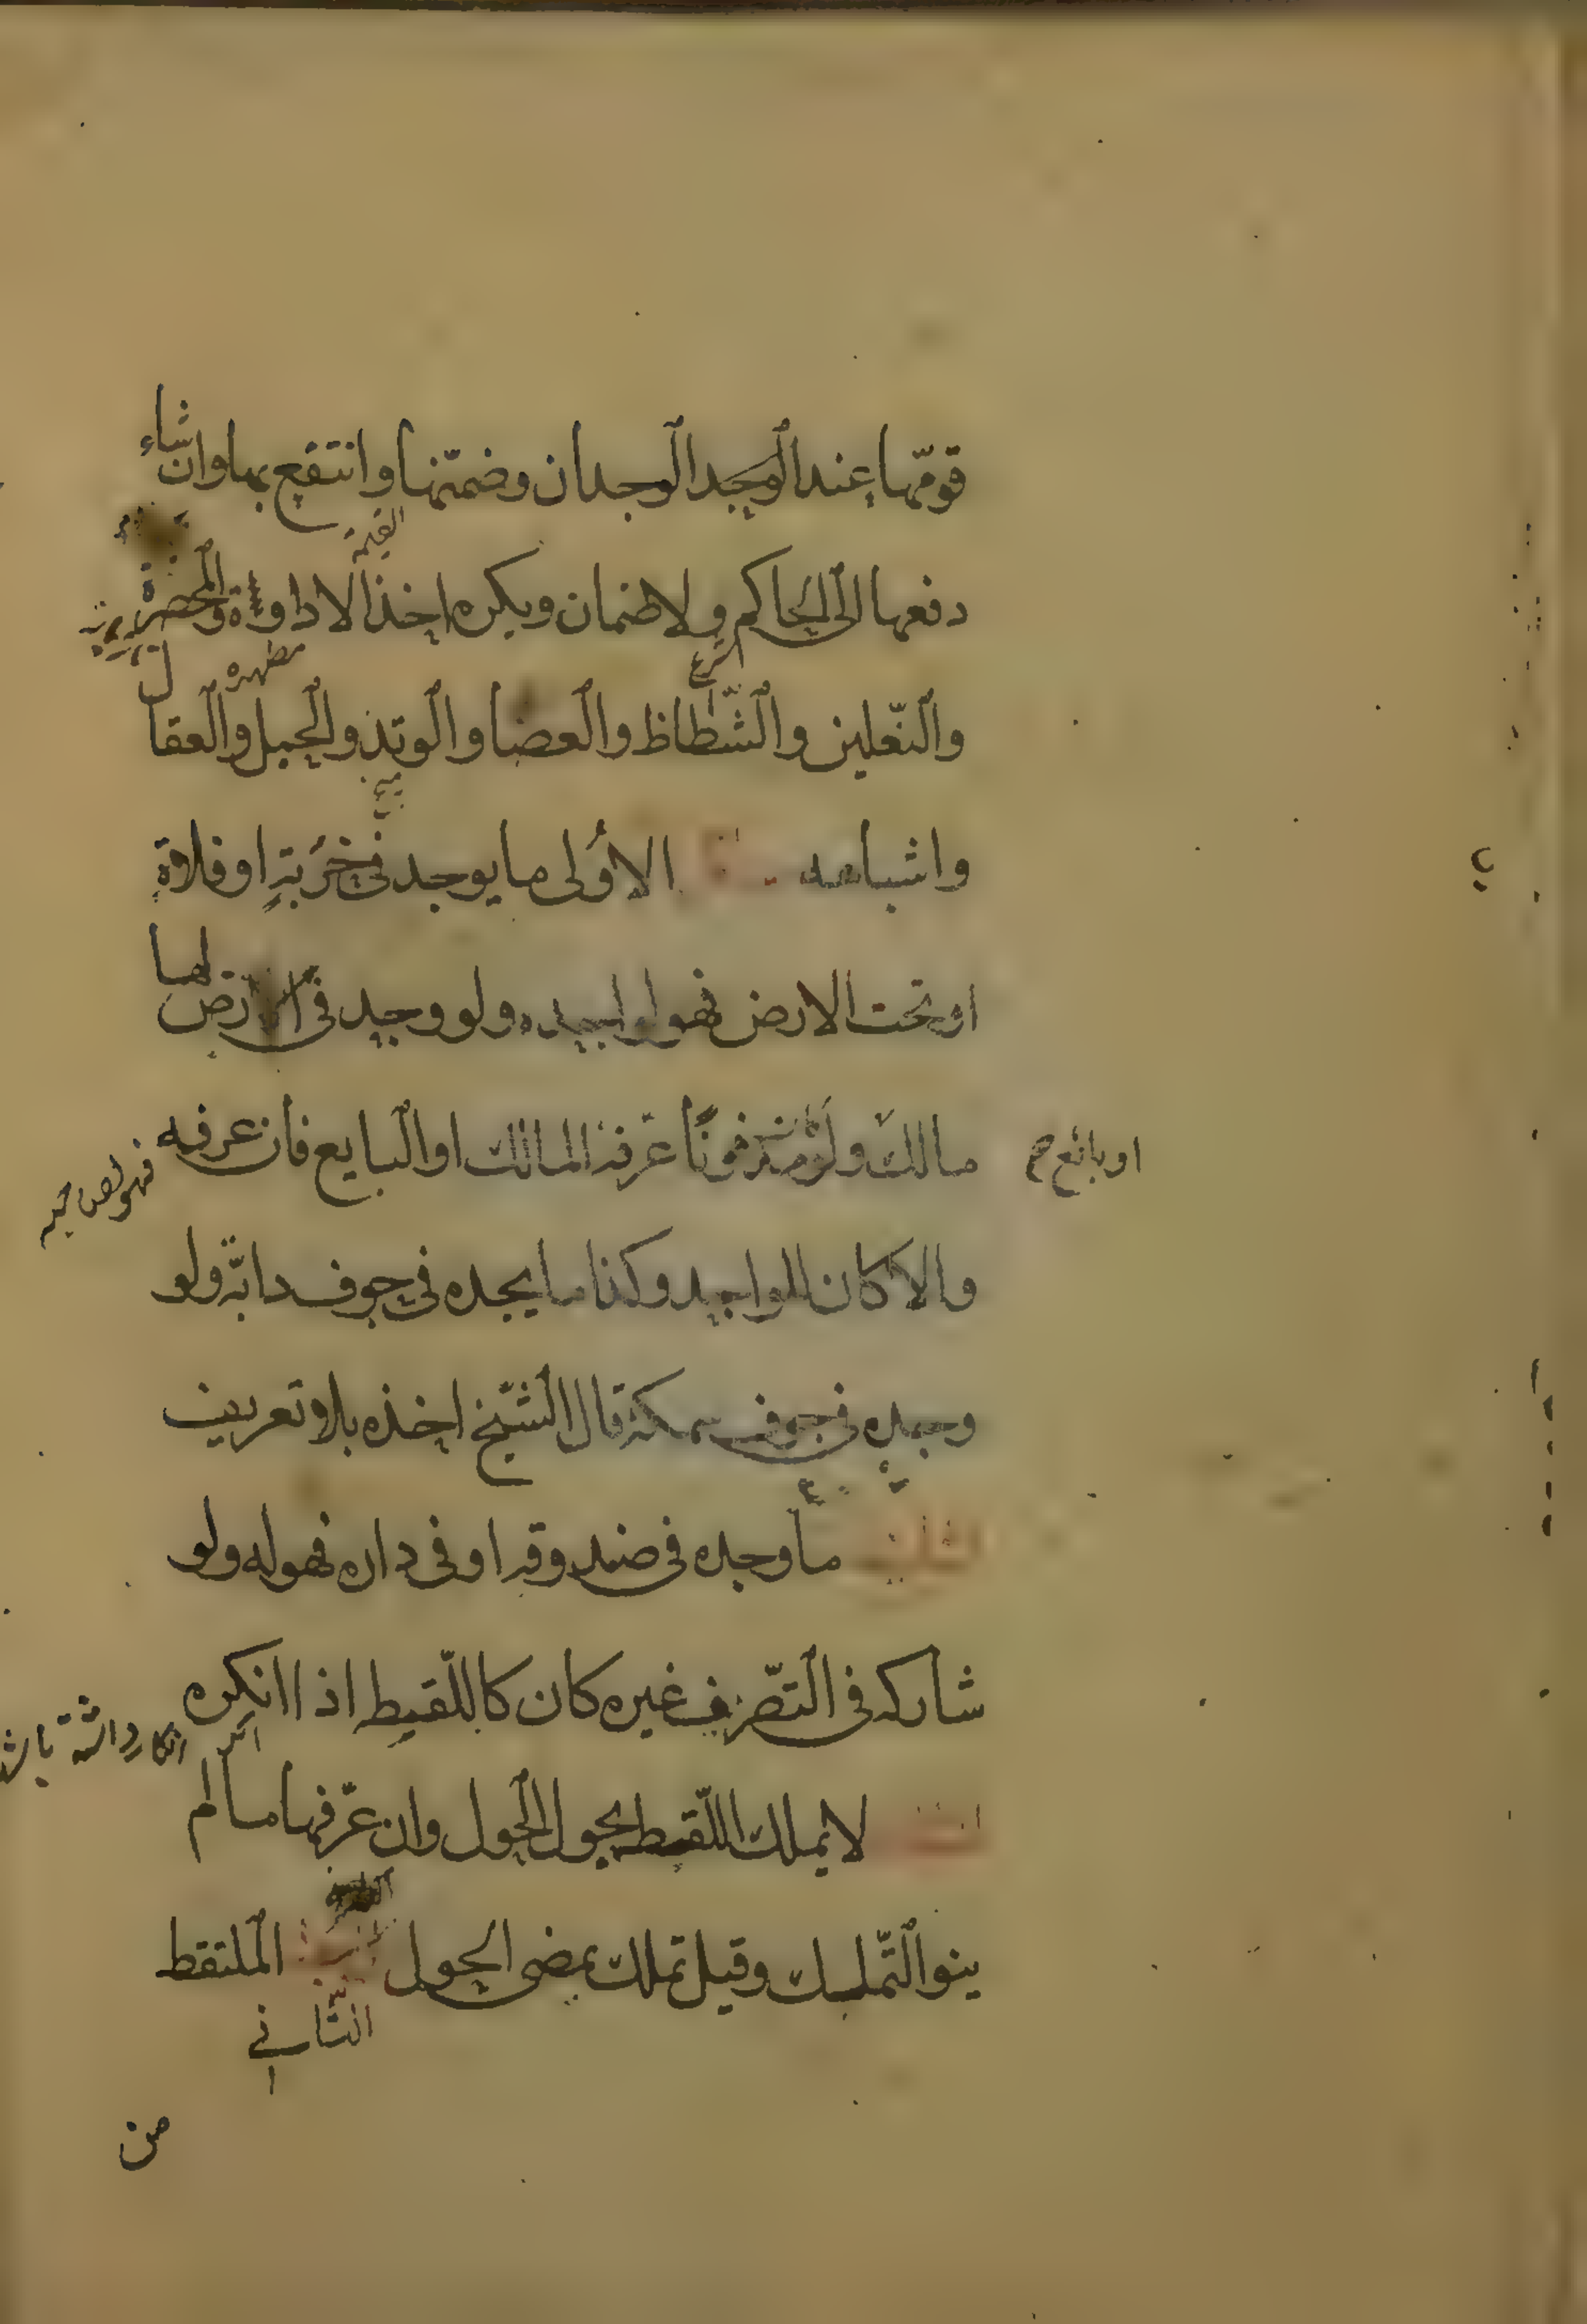 قومّها عند الوجد الوجدان وضمّنها وانتفع بها وان شاء
القيمة
دفعها الى الحاكم ولا ضمان ويكره اخذ الاداوة والمخصرة
الشرع
مطهره
والنّعلين والشّظاظ والعصا والوتد والحبل والعقال
واشباهه الاولى ما يوجد في خربةٍ او فلاة
او تحت الارض فهو لواجده ولو وجد في ارض لها
مالك ولو مدفونًا عرفه المالك او البايع فان عرفه
او بائع صح
والا كان للواجد وكذا ما يجده في جوف دابّة ولو
وجده في جوف سمكة قال الشّيخ اخذه بلا تعريف
الثانية ما وجده في صندوقه او في داره فهو له ولو
شاركه في التّصرف غيره كان كاللّقيط اذا انكره
انكار داشته باشد
لا يملك اللّقيط بحول الحول وان عرّفها ما لم
ينو التّملك وقيل تملك بمضى الحول الملتقط
الثاني
من